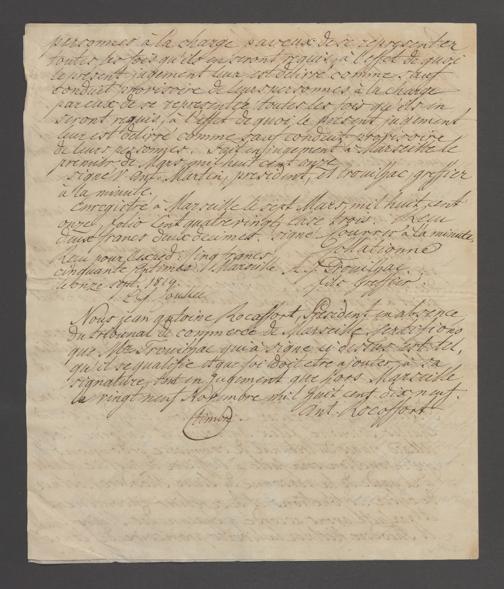 personnes à la charge par eux de se représenter
toutes les fois qu'ils en seront requis, à l'effet de quoi
le présent jugement leur est délivré comme sauf
conduit provisoire de leurs personnes à la charge
par eux de se représenter toutes les fois qu'ils en
seront requis, à l'effet de quoi le présent jugement
leur est délivré comme sauf conduit provisoire
de leurs personnes. fait en jugement à Marseille le
premier de Mars, mil huit cent onze
signé Ant. Martin, président, et trouilhac greffier
à la minute.
Enregistré à Marseille le sept Mars, mil huit cent
onze, folio Cent quatre vingt, Case trois. Reçu
deux francs deux decimes. signé à la minute
Reçu pour cinq francs Collationné
cinquante centimes Marseille
le onze 1819.
Nous jean antoine Rocoffort, Président en absence
du tribunal de commerce de Marseille, certifions
que Me. Trouilhac qui a signé ci dessus est tel,
qu'il se qualifie et que foi doit être ajoutée à sa
signature, tant en jugement que hors, Marseille
le vingt neuf Novembre mil huit cent dix neuf.
Ant. Rocoffort